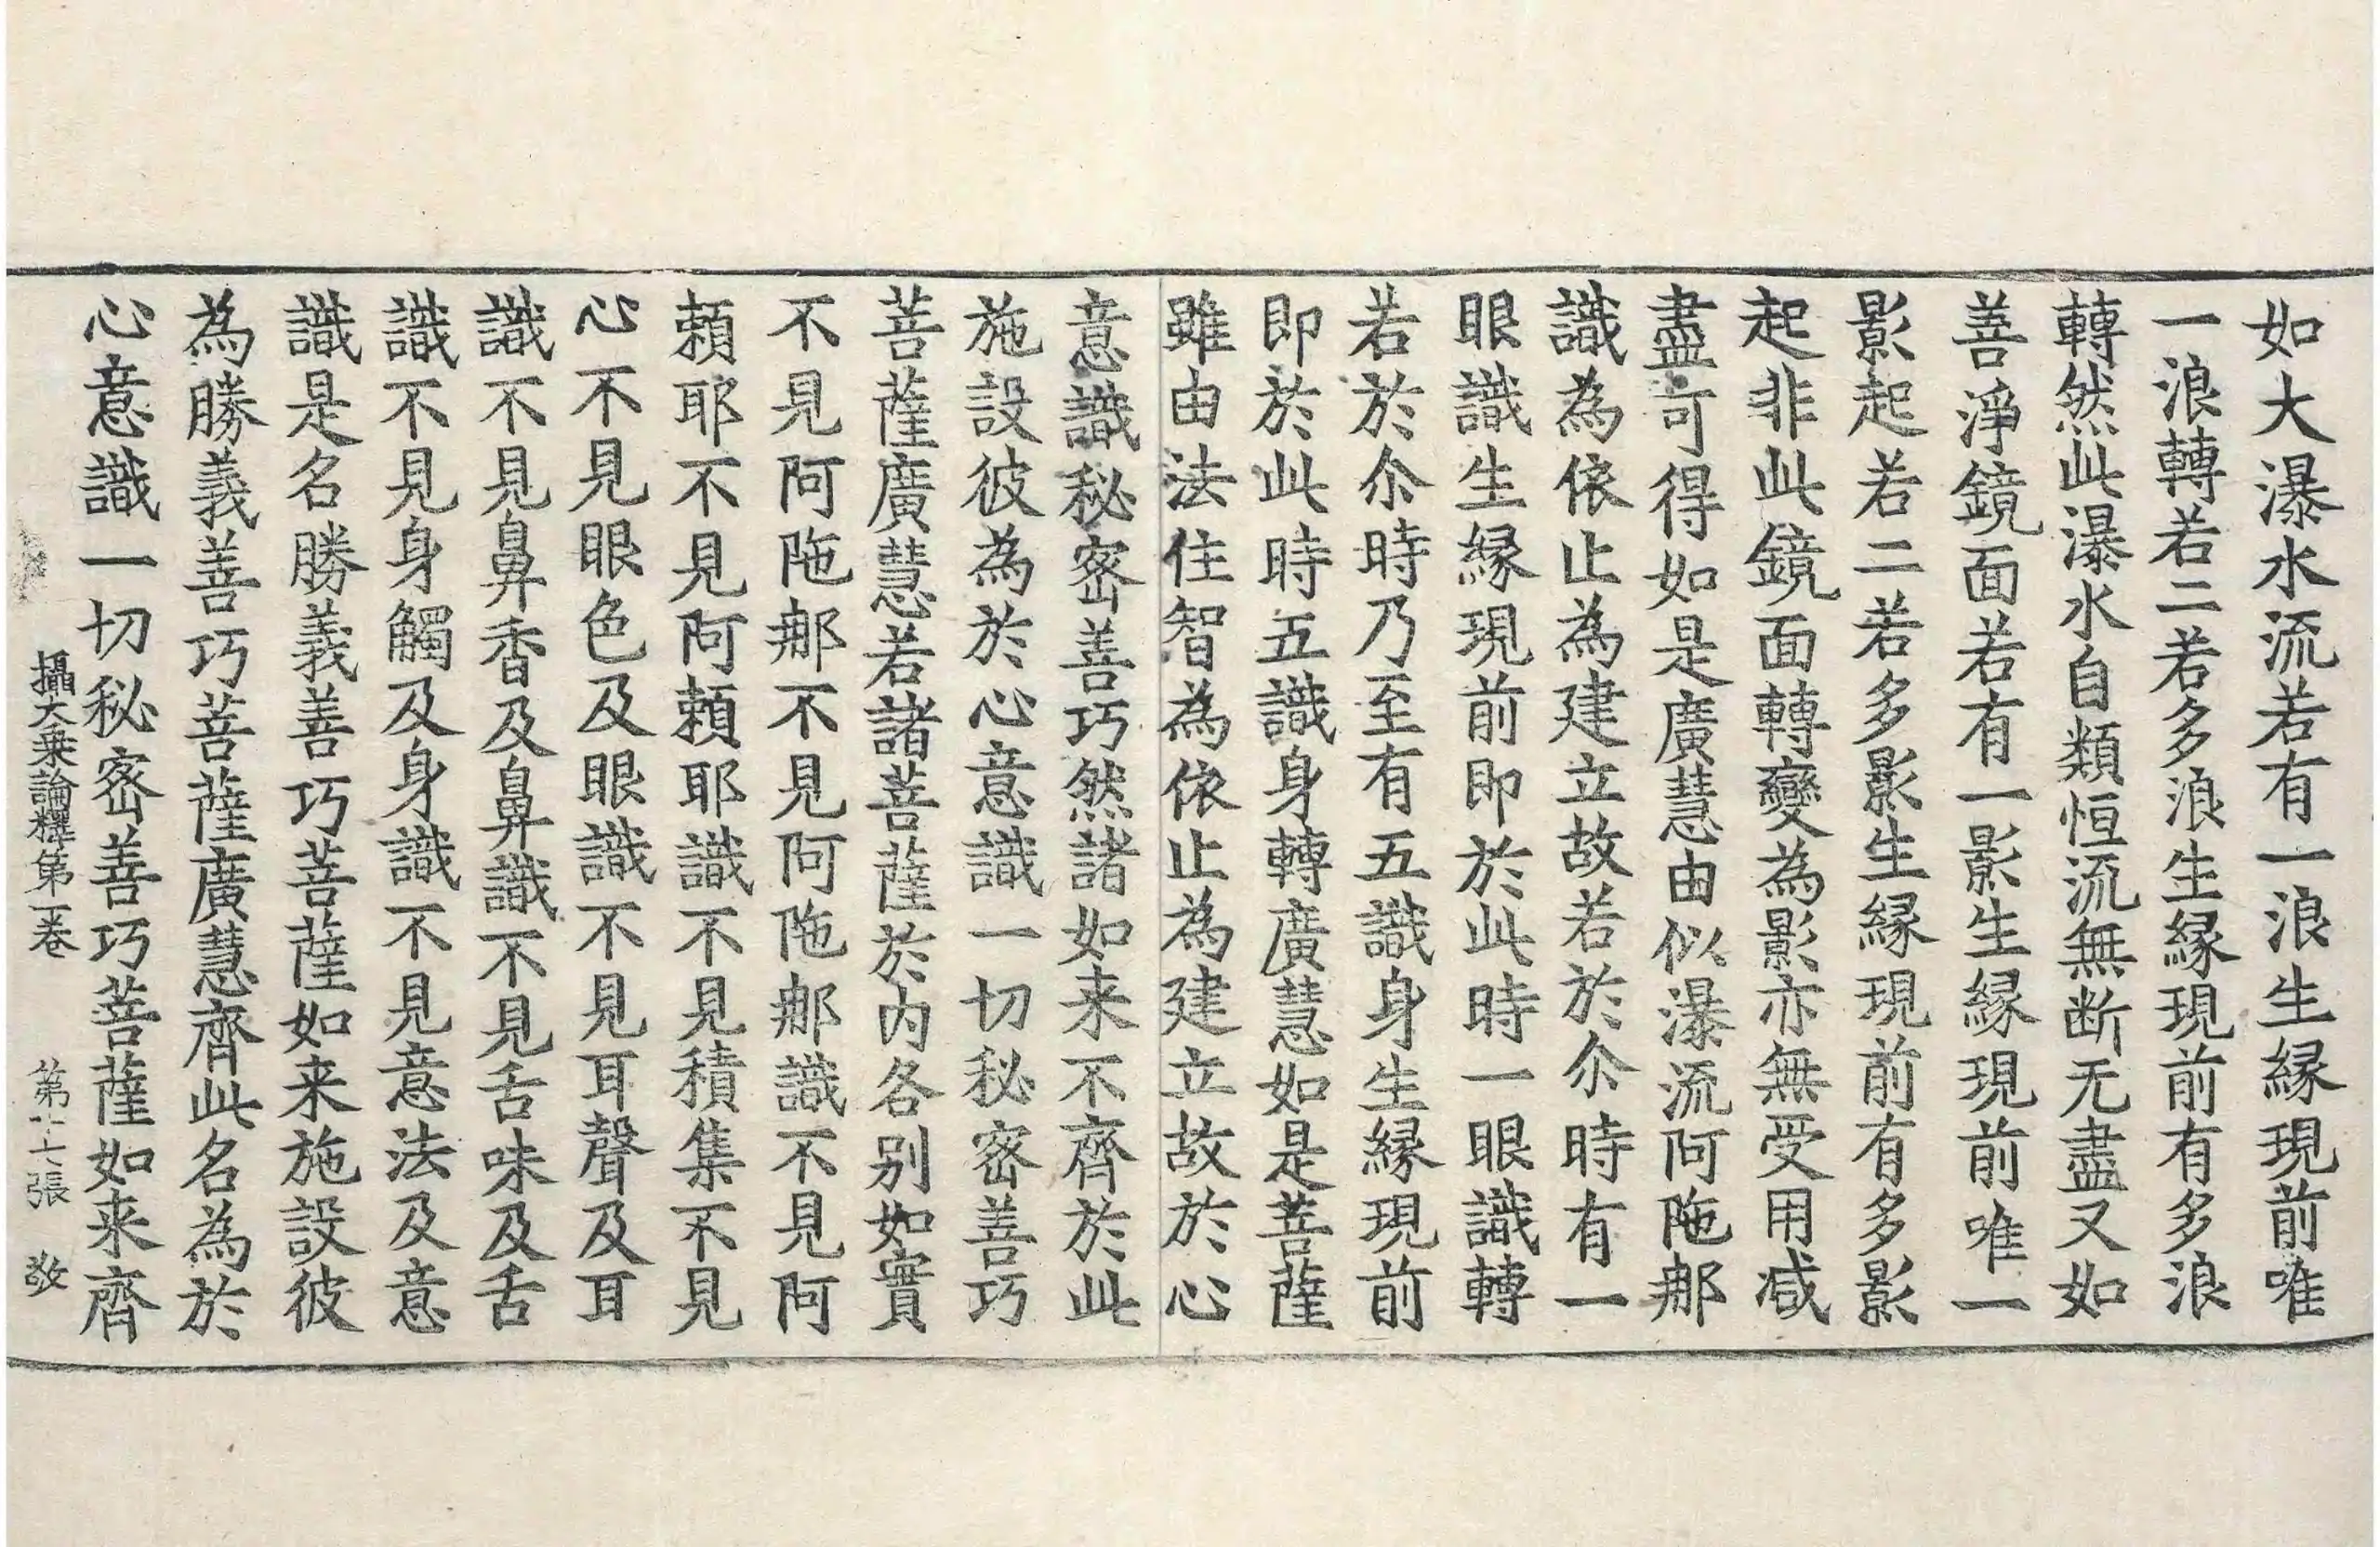 如大瀑水流若有一浪生縁現前唯
一浪轉若二若多浪生縁現前有多浪
轉然此瀑水自類恒流無断无盡又如
善淨鏡面若有一影生縁現前唯一
影起若二若多影生縁現前有多影
起非此鏡面轉變為影亦無受用减
盡可得如是廣慧由似瀑流阿陁那
識為依止為建立故若於尒時有一
眼識生縁現前即於此時一眼識轉
若於尒時乃至有五識身生縁現前
即於此時五識身轉廣慧如是菩薩
雖由法住智為依止為建立故於心
意識秘密善巧然諸如来不齊於此
施設彼為於心意識一切秘密善巧
菩薩廣慧若諸菩薩於内各别如實
不見阿陁那不見阿陁那識不見阿
頼耶不見阿頼耶識不見積集不見
心不見眼色及眼識不見耳聲及耳
識不見鼻香及鼻識不見舌味及舌
識不見身觸及身識不見意法及意
識是名勝義善巧菩薩如来施設彼
為勝義善巧菩薩廣慧齊此名為於
心意識一切秘密善巧菩薩如来齊
攝大乗論釋第一卷 第十七張 敬